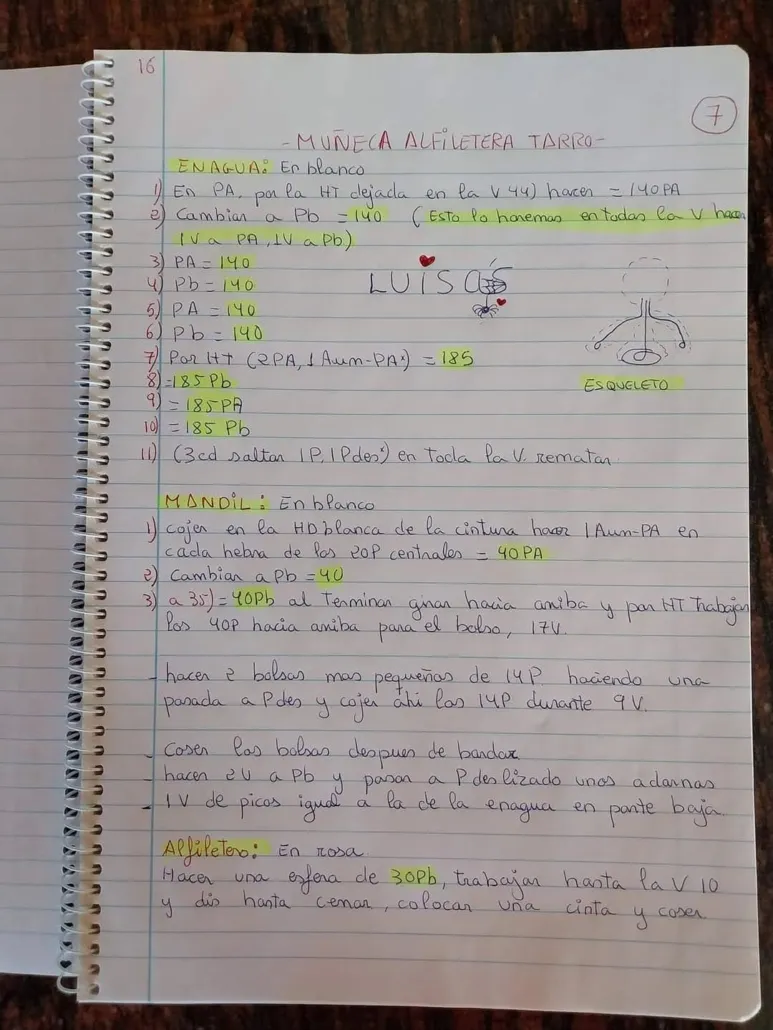 16
7
- MUÑECA ALFILETERA TARRO -
ENAGUA: En blanco
1) En PA, por la HT dejada en la V 44) hacer = 140PA
2) Cambiar a Pb = 140 (Esto lo haremos en todas la V hacer
1V a PA, 1V a Pb)
3) PA = 140
4) Pb = 140
5) PA = 140
6) Pb = 140
LUISAS
7) Por HT (2PA, 1Aum-PA) = 185
8) =185Pb
ESQUELETO
9) = 185PA
10) = 185 Pb
11) (3cd saltar 1P, 1Pdes) en toda la V. rematar
MANDIL: En blanco
1) cojer en la HD blanca de la cintura hacer 1Aum-PA en
cada hebra de los 20P centrales = 40PA
2) Cambiar a Pb = 40
3) a 35) = 40Pb al terminar girar hacia arriba y por HT trabajar
los 40P hacia arriba para el bolso, 17V.
- hacer 2 bolsas mas pequeñas de 14P. haciendo una
pasada a Pdes y cojer ahi los 14P durante 9V.
- Coser las bolsas despues de bordar
- hacer 2V a Pb y pasar a P deslizado unos adornas
- 1V de picos igual a la de la enagua en parte baja.
Alfiletero: En rosa
Hacer una esfera de 30Pb, trabajar hasta la V 10
y dis hasta cerrar, colocar una cinta y coser.